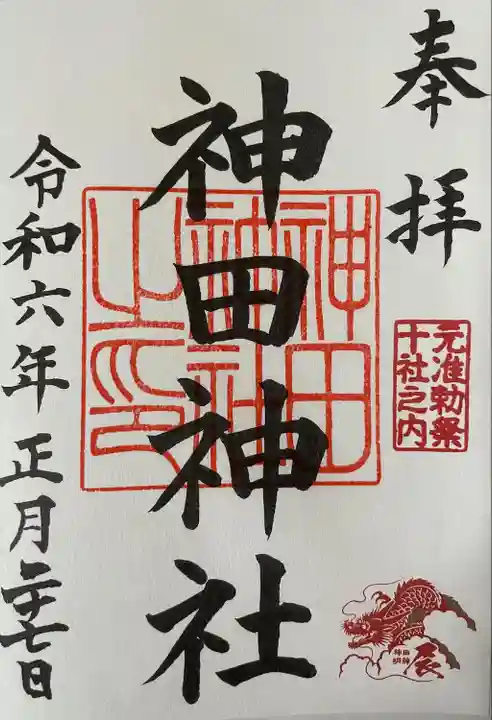 奉拝
元准勅祭
十社之内
辰
神田神社
神田
神社
之印
令和六年正月二十七日